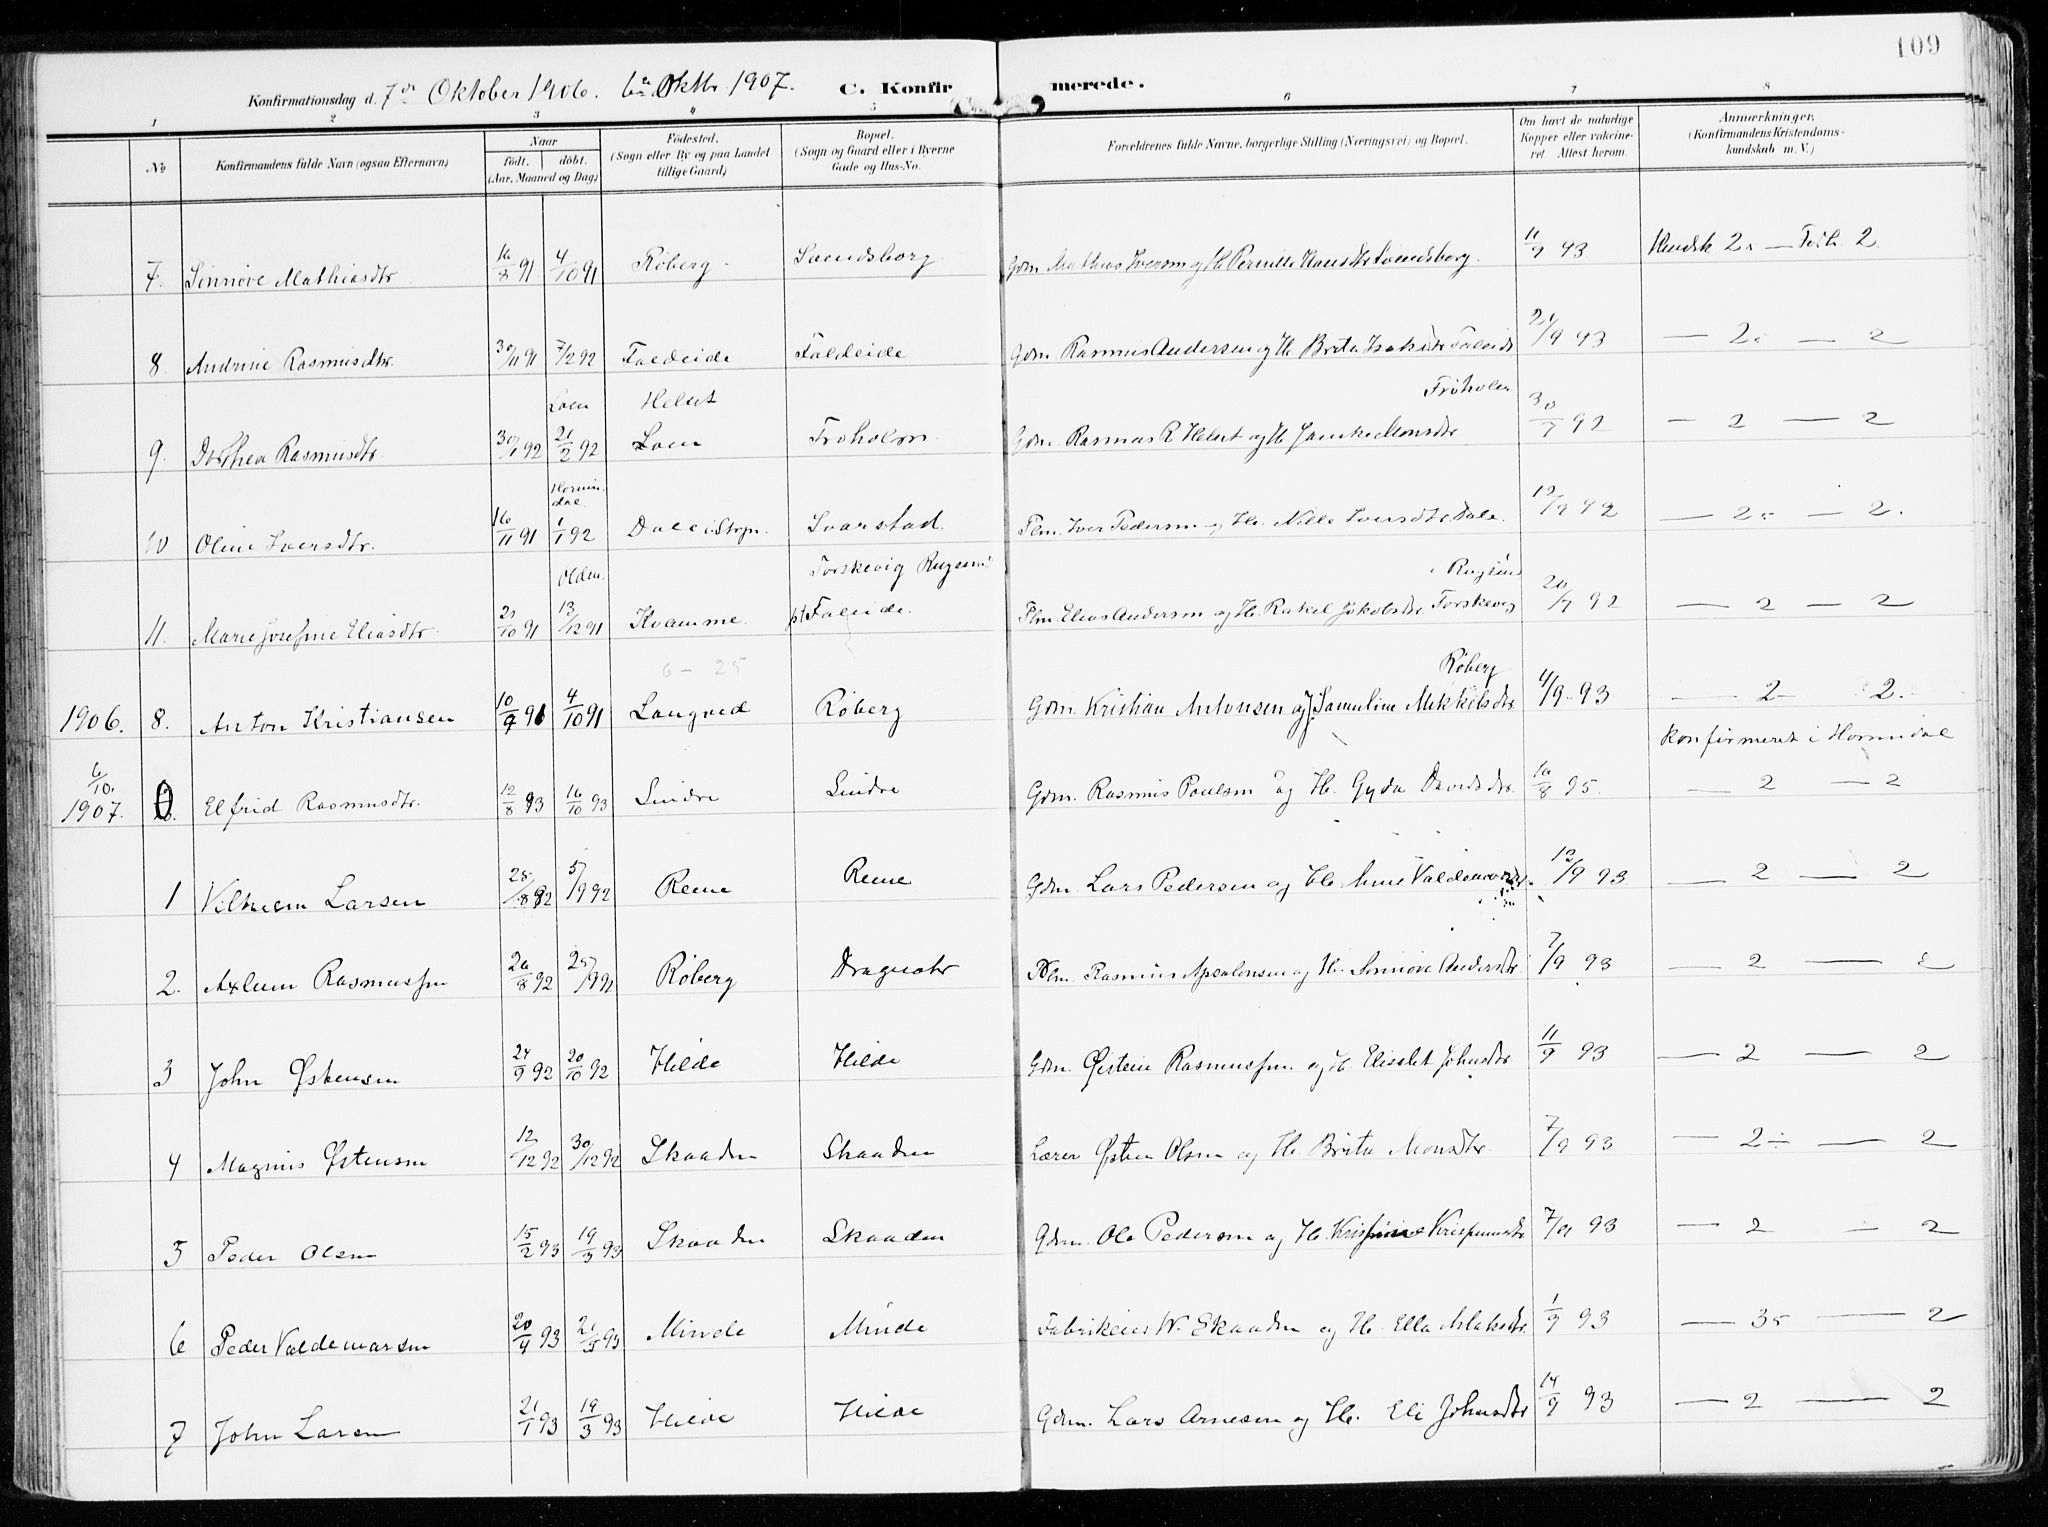 109
Konfirmationsdag d. 7de Oktober 1906. 6te Oktbr. 1907. C. Konfirmerede.
1 2 3 4 5 6 7 8
No Konfirmandens fulde Navn (ogsaa Efternavn) Naar født. døbt. (Aar, Maaned og Dag) Fødested. (Sogn eller By og paa Landet tillige Gaard) Bopæl. (Sogn og Gaard eller i Byerne Gade og Hus-No. Forældrenes fulde Navne, borgerlige Stilling (Næringsvei) og Bopæl. Om havt de naturlige Kopper eller vakcineret. Attest herom. Anmærkninger. (Konfirmandens Kristendomskundskab m. V.)
7. Sinnøve Mathiasdtr. 16/8 91 4/10 91 Røberg. Svendsborg Gdm. Mathias Iversen og H. Pernille Hansdtr Svendsborg. 11/9 93 Kundsk 2. — 2.
8. Andrine Rasmusdtr. 30/11 91 7/2 92 Faleide Faleide Gdm. Rasmus Andersen og H. Brita Faleide 21/9 93 — 2. — 2
Loen Helset Frøholm
9. Dorthea Rasmusdtr. 30/1 92 21/2 92 Loen Froholm. Gdm. Rasmus R. Helset og H. Monsdtr 30/7 92 — 2 — 2
Hornindal
10 Oline Iversdtr. 16/11 91 1/1 92 Dale i Stryn. Svarstad. Plm. Iver Pedersen og H. Iversdtr. Dale. 92 — 2. — 2.
Olden. Torskevig Rugsund i Rugsund
11. Marie Josefine Eliasdtr. 21/10 91 13/12 91 Kvamme. pt Faleide. Plm. Elias Andersen og H. Rakel Jakobsdtr. Torskevig 20/7 92 — 2 — 2
6 — 25 Røberg
1906. 8. Anton Kristiansen 10/9 91 4/10 91 Langved Røberg Gdm. Kristian Antonsen og H. Samuline Mikkelsdtr 4/9 93 — 2 — 2.
konfirmeret i Hornindal
6/10. 1907. Elfrid Rasmusdtr. 12/8 93 16/10 93 Sindre Sindre Gdm. Rasmus Paulsen og H. Gyda Davidsdtr. 16/8 95. — 2 — 2
1 Vilhelm Larsen 28/8 92 5/9 92 Reme Reme Gdm. Lars Pedersen og H. Anne Valdemarsdtr. 12/9 93 — 2 — 2
2. Rasmussen 26/8 92 25/9 92 Røberg Plm. Rasmus Apsalonsen og H. Sennøve Andersdtr. 7/9 93 — 2 — 2
3 John Østensen 24/9 92 20/10 92 Hilde Hilde Gdm. Øistein Rasmussen og H. Elisabet Johnsdtr. 11/9 93 — 2 — 2
4 Magnus Østensen 12/12 92 30/12 92 Skaaden Skaaden Lærer Østen Olsen og H. Brita Monsdtr. 7/9 93 — 2÷ — 2
5 Peder Olsen 15/2 93 19/3 93 Skaaden Skaaden Gdm. Ole Pedersen og H. 7/9 93 — 2 — 2
6 Peder Valdemarsen 20/4 93 21/5 93 Minde Minde Fabrikeier W. Skaaden og H. Ella 1/9 93 — 3 — 2
7 John Larsen 21/1 93 19/3 93 Hilde Hilde Gdm. Lars Arnesen og H. Eli Johnsdtr 14/9 93 — 2 — 2